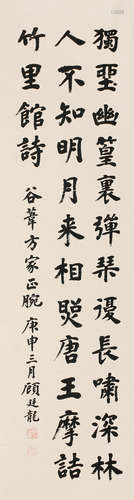 獨坐幽篁裏彈琴復長嘯深林
人不知明月来相照唐王摩詰
竹里館詩
谷葦方家正腕庚申三月顧廷龍